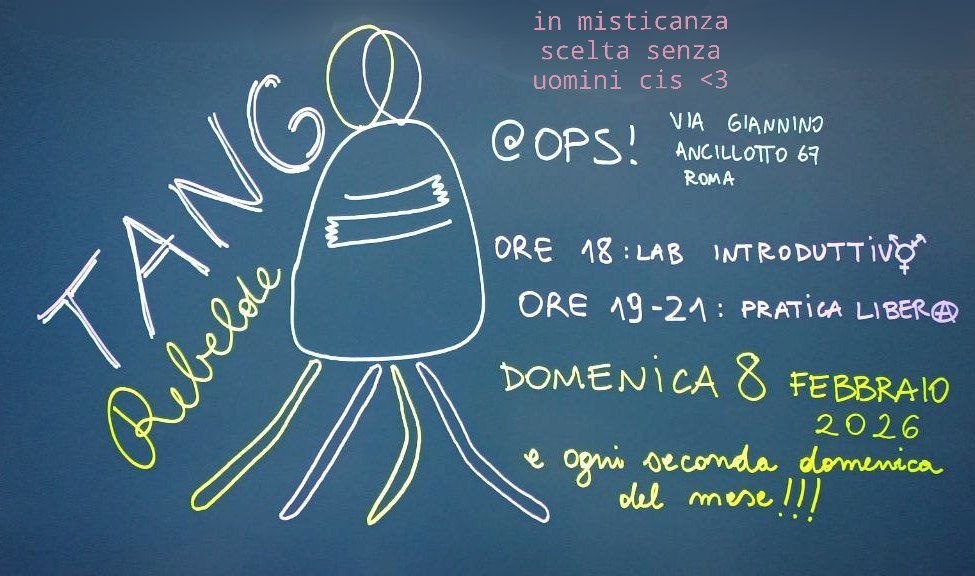 TANGO
Rebelde
in misticanza
scelta senza
uomini cis <3
@OPS!
VIA GIANNINO
ANCILLOTTO 67
ROMA
ORE 18: LAB INTRODUTTIVO
ORE 19-21: PRATICA LIBERA
DOMENICA 8 FEBBRAIO
2026
e ogni seconda domenica
del mese!!!